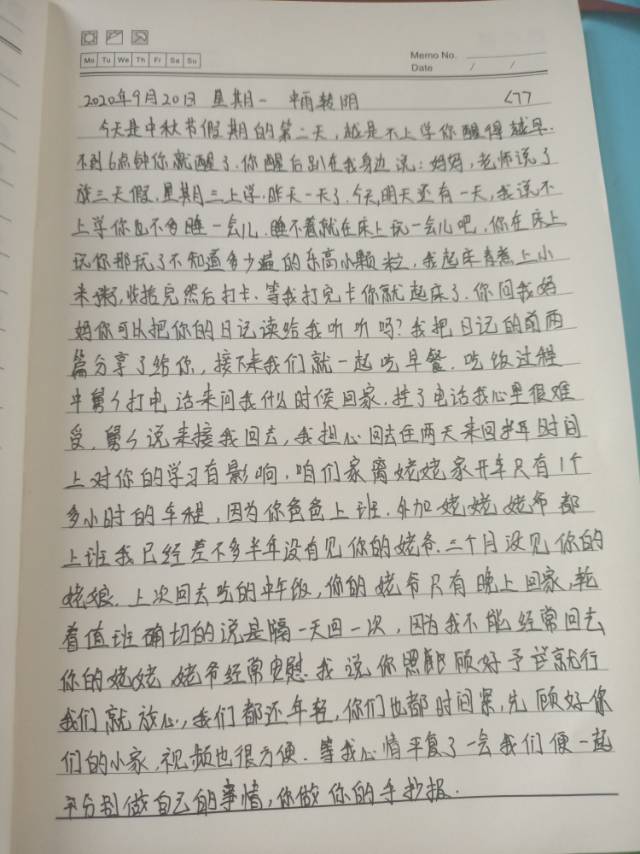 Mo Tu We Th Fr Sa Su
Memo No.
Date / /
2020年9月20日 星期一 中雨转阴 <77
今天是中秋节假期的第二天，越是不上学你醒得越早.
不到6点钟你就醒了.你醒后趴在我身边说:妈妈,老师说了
放三天假,星期三上学.昨天一天了.今天明天还有一天,我说不
上学你也不多睡一会儿.睡不着就在床上玩一会儿吧.你在床上
玩你那玩了不知道多少遍的乐高小颗粒,我起床煮上小
米粥,收拾完然后打卡.等我打完卡你就起床了.你问我妈
妈你可以把你的日记读给我听听吗?我把日记的前两
篇分享了给你,接下来我们就一起吃早餐.吃饭过程
中舅舅打电话来问我什么时候回家.挂了电话我心里很难
受.舅舅说来接我回去,我担心回去住两天来回时间
上对你的学习有影响.咱们家离姥姥家开车只有1个
多小时的车程,因为你爸爸上班.外加姥姥姥爷都
上班我已经差不多半年没有见你的姥爷.三个月没见你的
姥娘.上次回去吃的中午饭,你的姥爷只有晚上回家,轮
着值班确切的说是隔一天回一次,因为我不能经常回去
你的姥姥姥爷经常安慰我说你照顾好予诺就行
我们就放心,我们都还年轻,你们也都时间紧,先顾好你
们的小家,视频也很方便.等我心情平复了一会我们便一起
分别做自己的事情,你做你的手抄报.